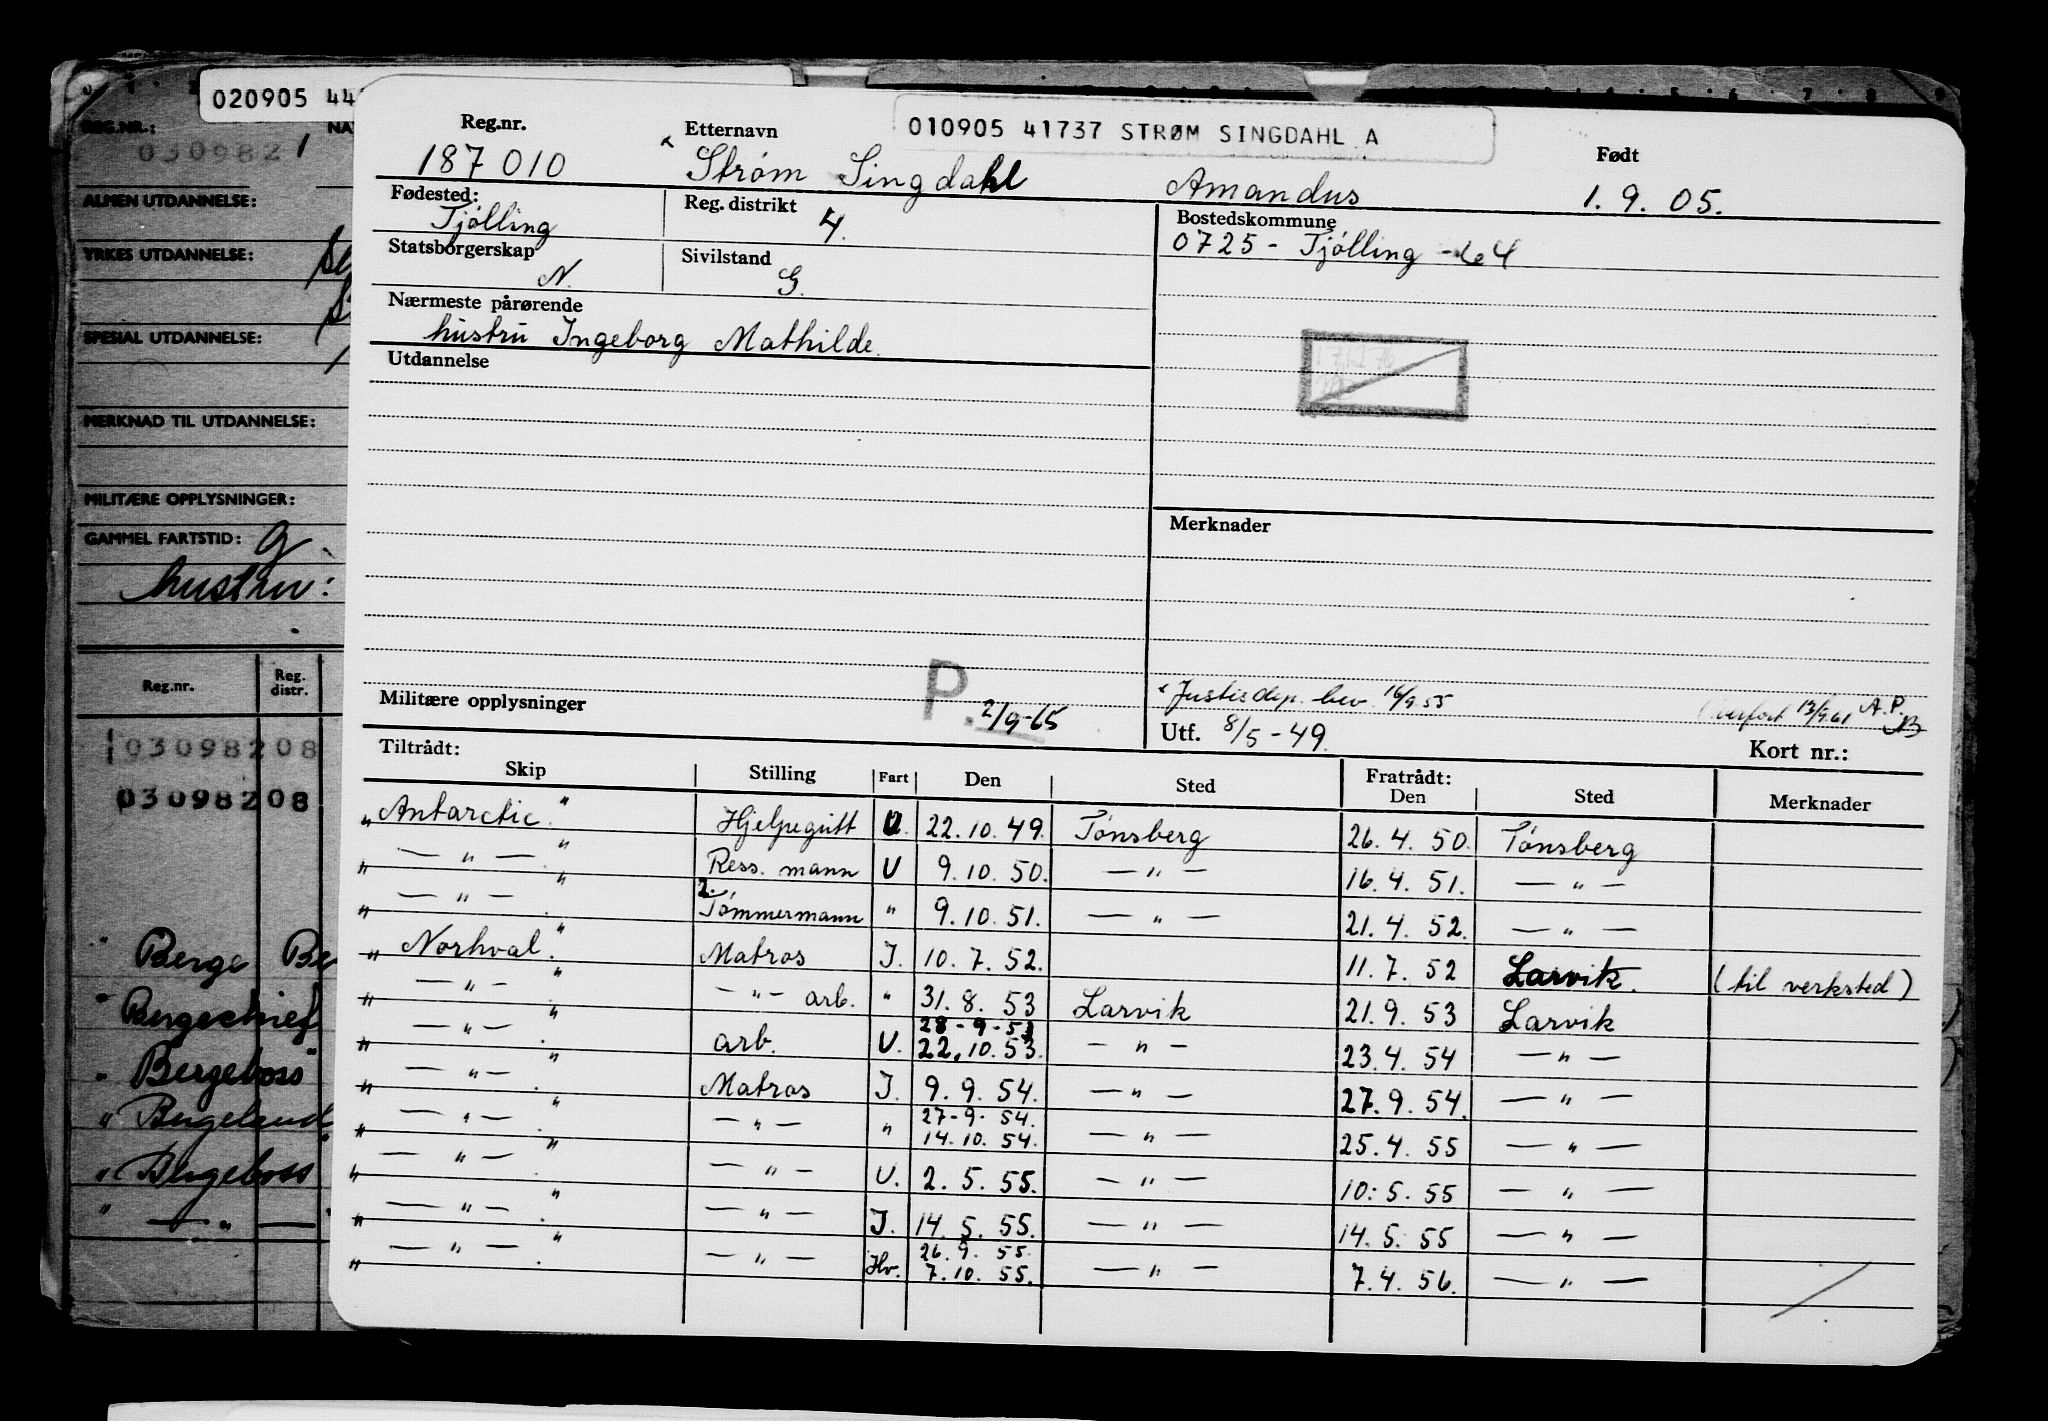 020905 44
REG.NR.:
NA
030982 1
ALMEN UTDANNELSE:
YRKES UTDANNELSE:
SPESIAL UTDANNELSE:
MERKNAD TIL UTDANNELSE:
MILITÆRE OPPLYSNINGER:
GAMMEL FARTSTID: g.
hustru:
Reg.nr. Reg. distr.
03098208
03098208
" Berge Be
" Bergechief
" Bergeboss
" Bergeland
" Bergeboss
" — " —
010905 41737 STRØM SINGDAHL A
Reg.nr. Etternavn Født
187010 × Strøm Singdahl Amandus 1. 9. 05.
Fødested: Reg. distrikt Bostedskommune
Tjølling 4. 0725 - Tjølling
Statsborgerskap Sivilstand
N. G.
Nærmeste pårørende
hustru Ingeborg Mathilde.
Utdannelse
Merknader
× Justisdep. bev. 16/9 55
overført 13/9.61 A.P.
Militære opplysninger P. 2/9-65 Utf. 8/5-49.
Kort nr.:
Tiltrådt: Fratrådt:
Skip Stilling Fart Den Sted Den Sted Merknader
" Antarctic." Hjelpegutt U. 22.10.49. Tønsberg 26.4.50. Tønsberg
" — " — ." Ress. mann U 9.10.50. — " — 16.4.51. — " —
" — " — ." 2. Tømmermann " 9.10.51. — " — 21.4.52. — " —
" Norhval." Matros I. 10.7.52. 11.7.52 Larvik. (til verksted)
" — " — ." — " — arb. " 31.8.53 Larvik 21.9.53 Larvik
28-9-53
" — " — ." arb. U. 22.10.53. — " — 23.4.54 — " —
" — " — ." Matros I. 9.9.54. — " — 27.9.54. — " —
27-9-54.
" — " — ." — " — " 14.10.54. — " — 25.4.55 — " —
" — " — ." — " — U. 2.5.55. — " — 10.5.55 — " —
" — " — ." — " — I. 14.5.55. — " — 14.5.55 — " —
26.9.55
" — " — ." — " — Hv. 7.10.55. — " — 7.4.56. — " —